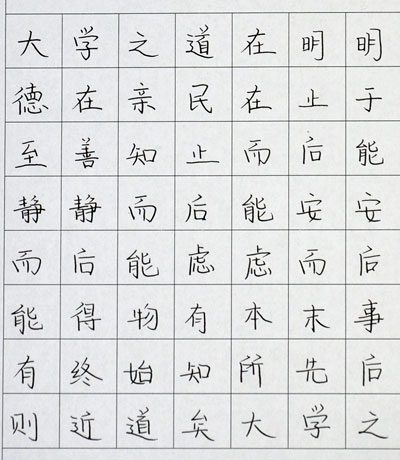 大学之道在明明
德在亲民在止于
至善知止而后能
静静而后能安安
而后能虑虑而后
能得物有本末事
有终始知所先后
则近道矣大学之